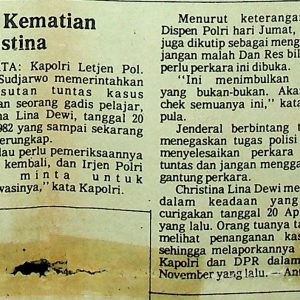 Kematian
stina
TA: Kapolri Letjen Pol.
Sudjarwo memerintahkan
usutan tuntas kasus
an seorang gadis pelajar,
na Lina Dewi, tanggal 20
982 yang sampai sekarang
erungkap.
au perlu pemeriksaannya
kembali, dan Irjen Polri
minta untuk
wasinya", kata Kapolri.
Menurut keterangan
Dispen Polri hari Jumat,
juga dikutip sebagai meng
jangan malah Dan Res bil
perlu perkara ini dibuka.
"Ini menimbulkan
yang bukan-bukan. Akan
chek semuanya ini," kata
pula.
Jenderal berbintang t
menegaskan tugas polisi
menyelesaikan perkara
tuntas dan jangan mengga
gantung perkara.
Christina Lina Dewi me
dalam keadaan yang
curigakan tanggal 20 Ap
yang lalu. Orang tuanya ta
melihat penanganan kas
sehingga melaporkannya
Kapolri dan DPR dalam
November yang lalu. — Ant